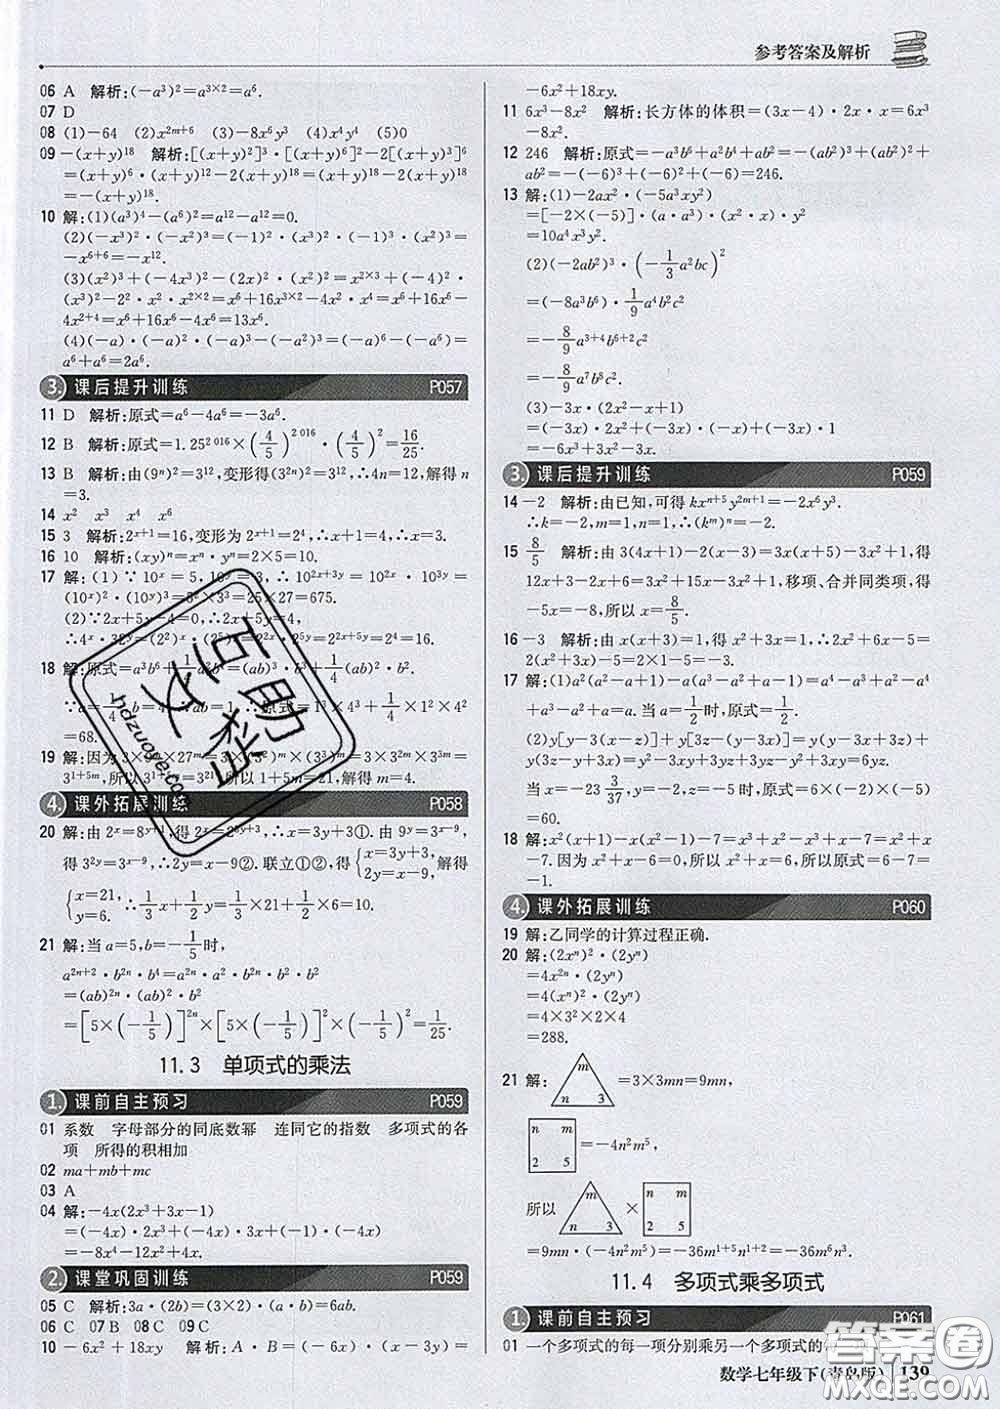 参考答案及解析
06 A 解析:(-a³)²=a³ˣ²=a⁶.
07 D
08 (1)-64 (2)x²ᵐ⁺⁶ (3)-8x⁶y³ (4)x⁴ (5)0
09 -(x+y)¹⁸ 解析:[(x+y)²]³·[(x+y)⁶]²-2[(x+y)³]⁶
=(x+y)⁶·(x+y)¹²-2(x+y)¹⁸=(x+y)¹⁸-2(x+y)¹⁸
=-(x+y)¹⁸.
10 解:(1)(a³)⁴-(a⁶)²=a¹²-a¹²=0.
(2)(-x³)²·(-x²)³=(-1)²·(x³)²·(-1)³·(x²)³=
-x⁶⁺⁶=-x¹².
(3)(x²)³+(-4x³)²-(2x)²·(x²)²=x²ˣ³+(-4)²·
(x³)²-2²·x²·x²ˣ²=x⁶+16x³ˣ²-4x²·x⁴=x⁶+16x⁶-
4x²⁺⁴=x⁶+16x⁶-4x⁶=13x⁶.
(4)(-a)·(-a)²·(-a)³-(-a²)³=(-a)⁶-(-a⁶)=
a⁶+a⁶=2a⁶.
3. 课后提升训练 P057
11 D 解析:原式=a⁶-4a⁶=-3a⁶.
12 B 解析:原式=1.25²⁰¹⁶×(4/5)²⁰¹⁶·(4/5)²=16/25.
13 B 解析:由(9ⁿ)²=3¹²,变形得(3²ⁿ)²=3¹²,∴4n=12,解得n
=3.
14 x² x³ x⁴ x⁶
15 3 解析:2ˣ⁺¹=16,变形为2ˣ⁺¹=2⁴,∴x+1=4,∴x=3.
16 10 解析:(xy)ⁿ=xⁿ·yⁿ=2×5=10.
17 解:(1)∵10ˣ=5,10ʸ=3,∴10²ˣ⁺³ʸ=10²ˣ·10³ʸ=
(10ˣ)²·(10ʸ)³=5²×3³=25×27=675.
(2)∵2x+5y-4=0,∴2x+5y=4,
∴4ˣ·32ʸ=(2²)ˣ·(2⁵)ʸ=2²ˣ·2⁵ʸ=2²ˣ⁺⁵ʸ=2⁴=16.
18 解:原式=a³b⁶+1/4a²b⁴=(ab)³·b³+1/4(ab)²·b².
∵a=1/4,b=4,∴ab=1,∴原式=1³×4³+1/4×1²×4²
=68.
19 解:因为3×9ᵐ×27ᵐ=3×(3²)ᵐ×(3³)ᵐ=3×3²ᵐ×3³ᵐ=
3¹⁺⁵ᵐ,所以3¹⁺⁵ᵐ=3²¹,所以1+5m=21,解得m=4.
4. 课外拓展训练 P058
20 解:由2ˣ=8ʸ⁺¹,得2ˣ=2³ʸ⁺³,∴x=3y+3①.由9ʸ=3ˣ⁻⁹,
得3²ʸ=3ˣ⁻⁹,∴2y=x-9②.联立①②,得{x=3y+3, 2y=x-9,解得
{x=21, y=6. ∴1/3x+1/2y=1/3×21+1/2×6=10.
21 解:当a=5,b=-1/5时,
a²ⁿ⁺²·b²ⁿ·b⁴=a²ⁿ·a²·b²ⁿ·b²·b²
=(ab)²ⁿ·(ab)²·b²
=[5×(-1/5)]²ⁿ×[5×(-1/5)]²×(-1/5)²=1/25.
11.3 单项式的乘法
1. 课前自主预习 P059
01 系数 字母部分的同底数幂 连同它的指数 多项式的各
项 所得的积相加
02 ma+mb+mc
03 A
04 解:-4x(2x³+3x-1)
=(-4x)·2x³+(-4x)·3x+(-4x)·(-1)
=-8x⁴-12x²+4x.
2. 课堂巩固训练 P059
05 C 解析:3a·(2b)=(3×2)·(a·b)=6ab.
06 C 07 B 08 C 09 C
10 -6x²+18xy 解析:A·B=(-6x)·(x-3y)=
-6x²+18xy.
11 6x³-8x² 解析:长方体的体积=(3x-4)·2x·x=6x³
-8x².
12 246 解析:原式=-a³b⁶+a²b⁴+ab²=-(ab²)³+(ab²)²+
ab²=-(-6)³+(-6)²+(-6)=246.
13 解:(1)-2ax²·(-5a³xy²)
=[-2×(-5)]·(a·a³)·(x²·x)·y²
=10a⁴x³y².
(2)(-2ab²)³·(-1/3a²bc)²
=(-8a³b⁶)·1/9a⁴b²c²
=-8/9a³⁺⁴b⁶⁺²c²
=-8/9a⁷b⁸c².
(3)-3x·(2x²-x+1)
=(-3x)·2x²+(-3x)·(-x)+(-3x)·1
=-6x³+3x²-3x.
3. 课后提升训练 P059
14 -2 解析:由已知,可得kxⁿ⁺⁵y²ᵐ⁺¹=-2x⁶y³.
∴k=-2,m=1,n=1,∴(kᵐ)ⁿ=-2.
15 8/5 解析:由3(4x+1)-2x(x-3)=x-2x²+11,得
12x+3-2x²+6x=x-2x²+11,移项、合并同类项,得
-5x=-8,所以x=8/5.
16 -3 解析:由x(x+3)=1,得x²+3x=1,∴2x²+6x-5=
2(x²+3x)-5=2×1-5=-3.
17 解:(1)a²(a²-a+1)-a(a³-a²+a-1)=a⁴-a³+a²-a⁴
+a³-a²+a=a.当a=1/2时,原式=1/2.
(2)y[y-3(x-z)]+y[3z-(y-3x)]=y(y-3x+3z)+
y(3z-y+3x)=y²-3xy+3yz+3yz-y²+3xy=6yz.
当x=-23 3/37,y=-2,z=-5时,原式=6×(-2)×(-5)
=60.
18 解:x²(x+1)-x(x²-1)-7=x³+x²-x³+x-7=x²+x
-7.因为x²+x-6=0,所以x²+x=6,所以原式=6-7=
-1.
4. 课外拓展训练 P060
19 解:乙同学的计算过程正确.
20 解:(2xⁿ)²·(2yⁿ)
=4x²ⁿ·(2yⁿ)
=4(xⁿ)²·(2yⁿ)
=4×3²×2×4
=288.
21 解: m n 3 =3×3×mn=9mn,
n m 2 5 =-4n²m⁵,
所以 m n 3 × n m 2 5
=9mn·(-4n²m⁵)=-36m¹⁺⁵n¹⁺²=-36m⁶n³.
11.4 多项式乘多项式
1. 课前自主预习 P061
01 一个多项式的每一项分别乘另一个多项式的
数学七年级下(青岛版) 139
互助文栋
hdzuoye.com
答案圈
MXQE.COM